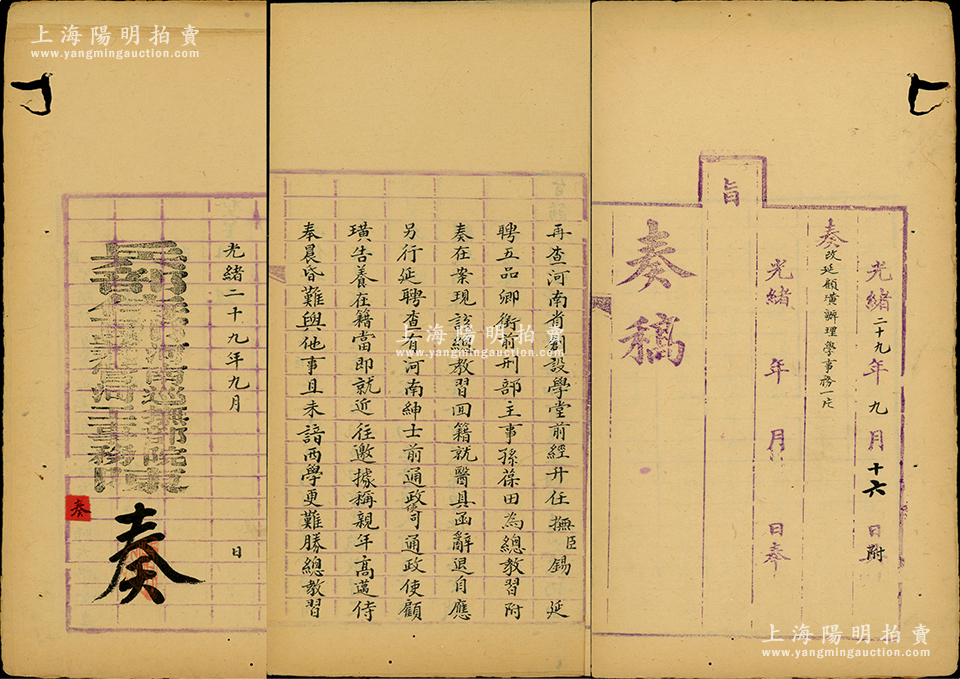 上海陽明拍賣
www.yangmingauction.com
旨
光緒二十九年九月十六日附
奏改延顧璜辦理學事務一片
光緒 年 月 日奉
奏稿
再查河南省創設學堂前經升任撫臣錫 延
聘五品卿銜前刑部主事孫葆田為總教習附
奏在案現該總教習回籍就醫具函辭退自應
另行延聘查有河南紳士前通政司通政使顧
璜告養在籍當即就近往邀據稱親年高邁侍
奉晨昏難與他事且未諳西學更難勝總教習
上海陽明拍賣
www.yangmingauction.com
光緒二十九年九月 日
兵部 河南巡撫部院
奏
奏
上海陽明拍賣
www.yangmingauction.com